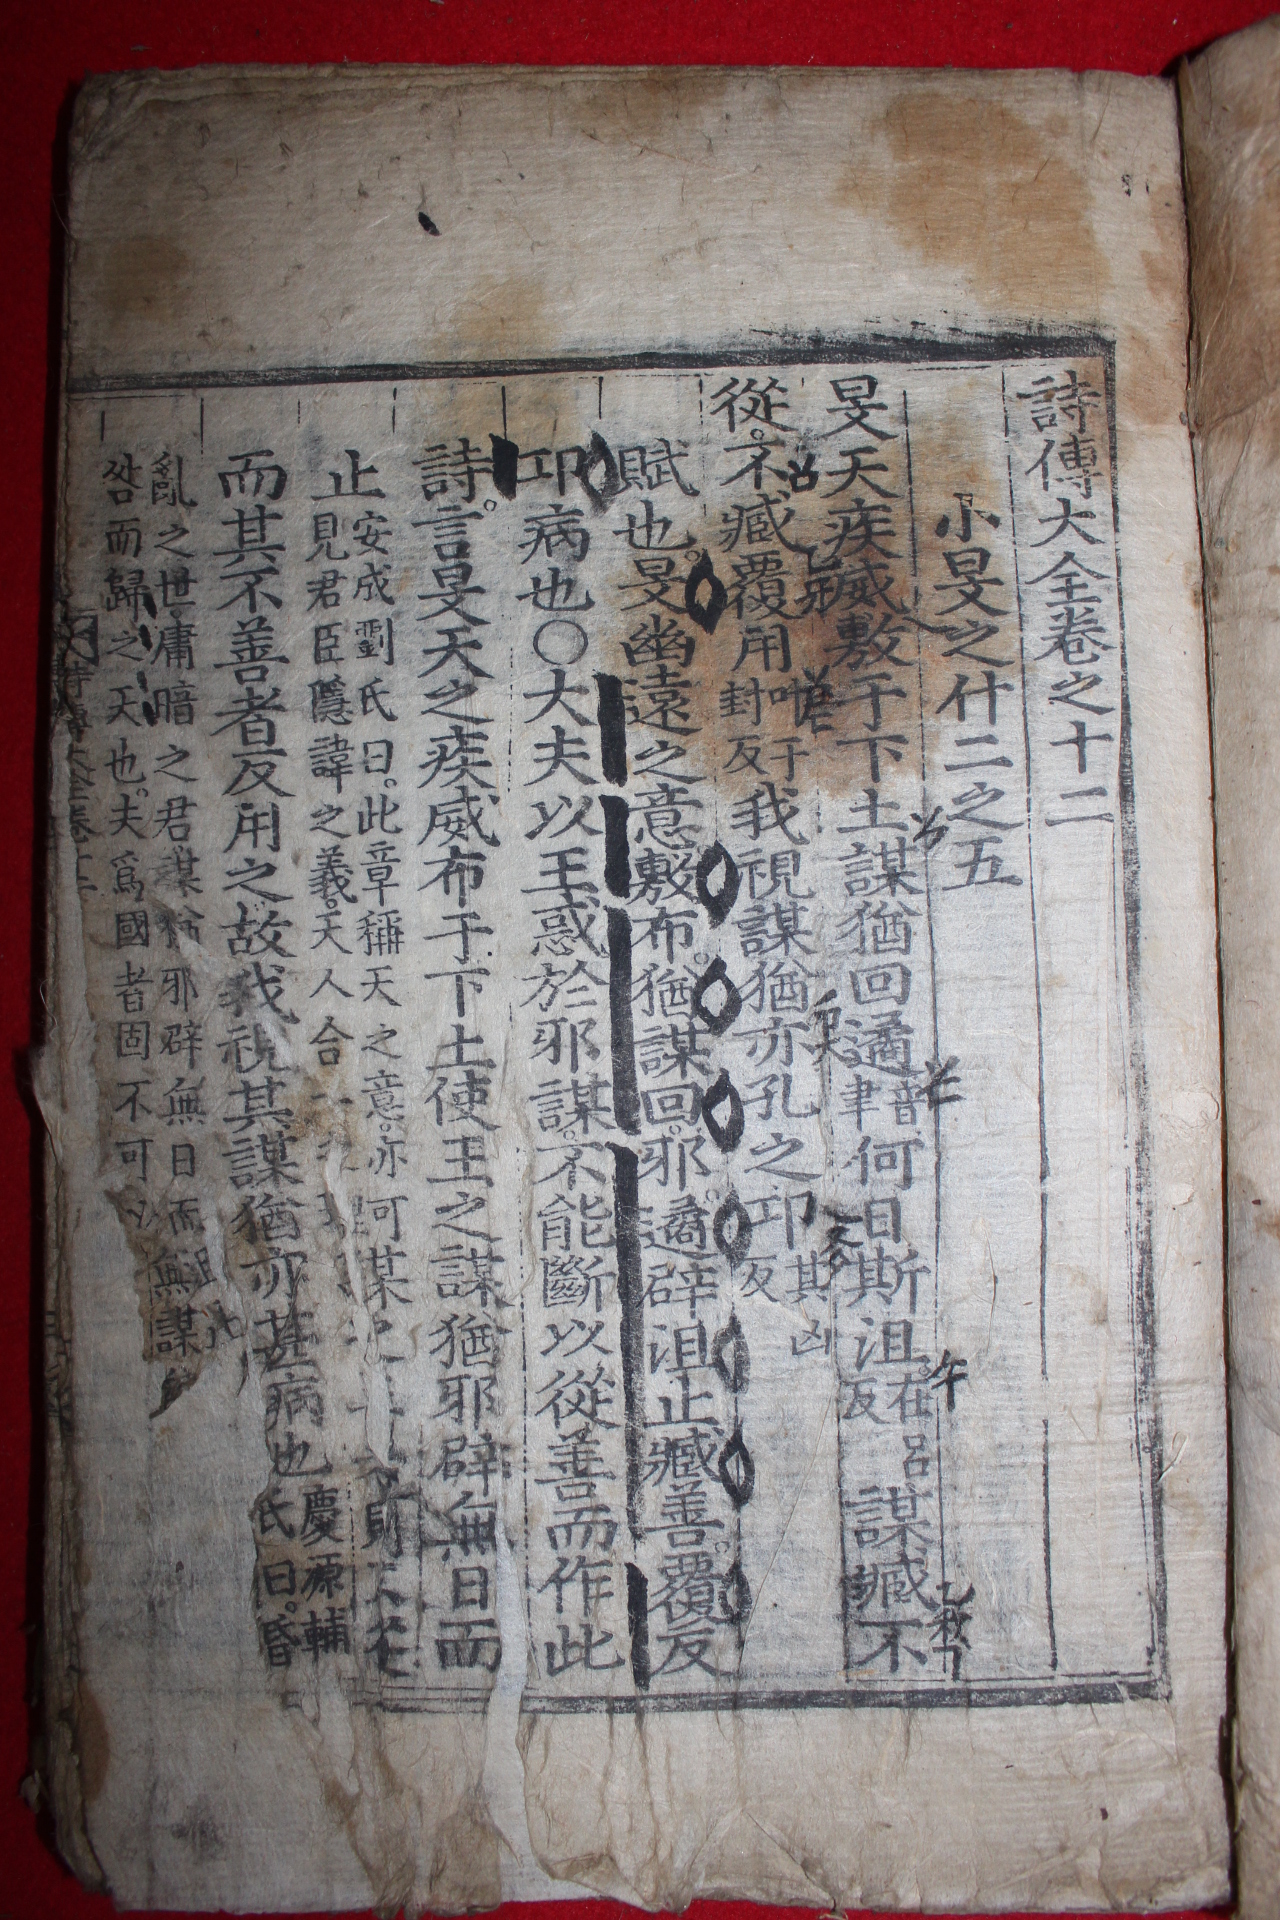 詩傳大全卷之十二
小旻之什二之五
旻天疾威敷于下土謀猶回遹音聿何日斯沮在呂反謀臧不
從不臧覆用我視謀猶亦孔之邛其凶反
賦也旻幽遠之意敷布猶謀回邪遹辟沮止臧善覆反
邛病也○大夫以王惑於邪謀不能斷以從善而作此
詩言旻天之疾威布于下土使王之謀猶邪辟無日而
止安成劉氏曰此章稱天之意亦可
見君臣隱諱之義天人合一
而其不善者反用之故我視其謀猶亦甚病也慶源輔
氏曰昏
亂之世庸暗之君謀猶邪辟無日而無謀
咎而歸之天也夫爲國者固不可